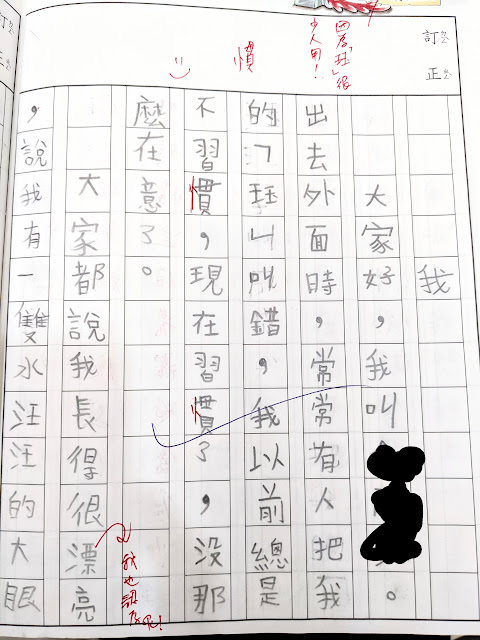 訂正
因為「」很少人用!
慣
我
大家好,我叫。
出去外面時,常常有人把我
的「」叫錯,我以前總是
不習慣,現在習慣了,沒那
麼在意了。
大家都說我長得很漂亮
我也認為
,說我有一雙水汪汪的大眼